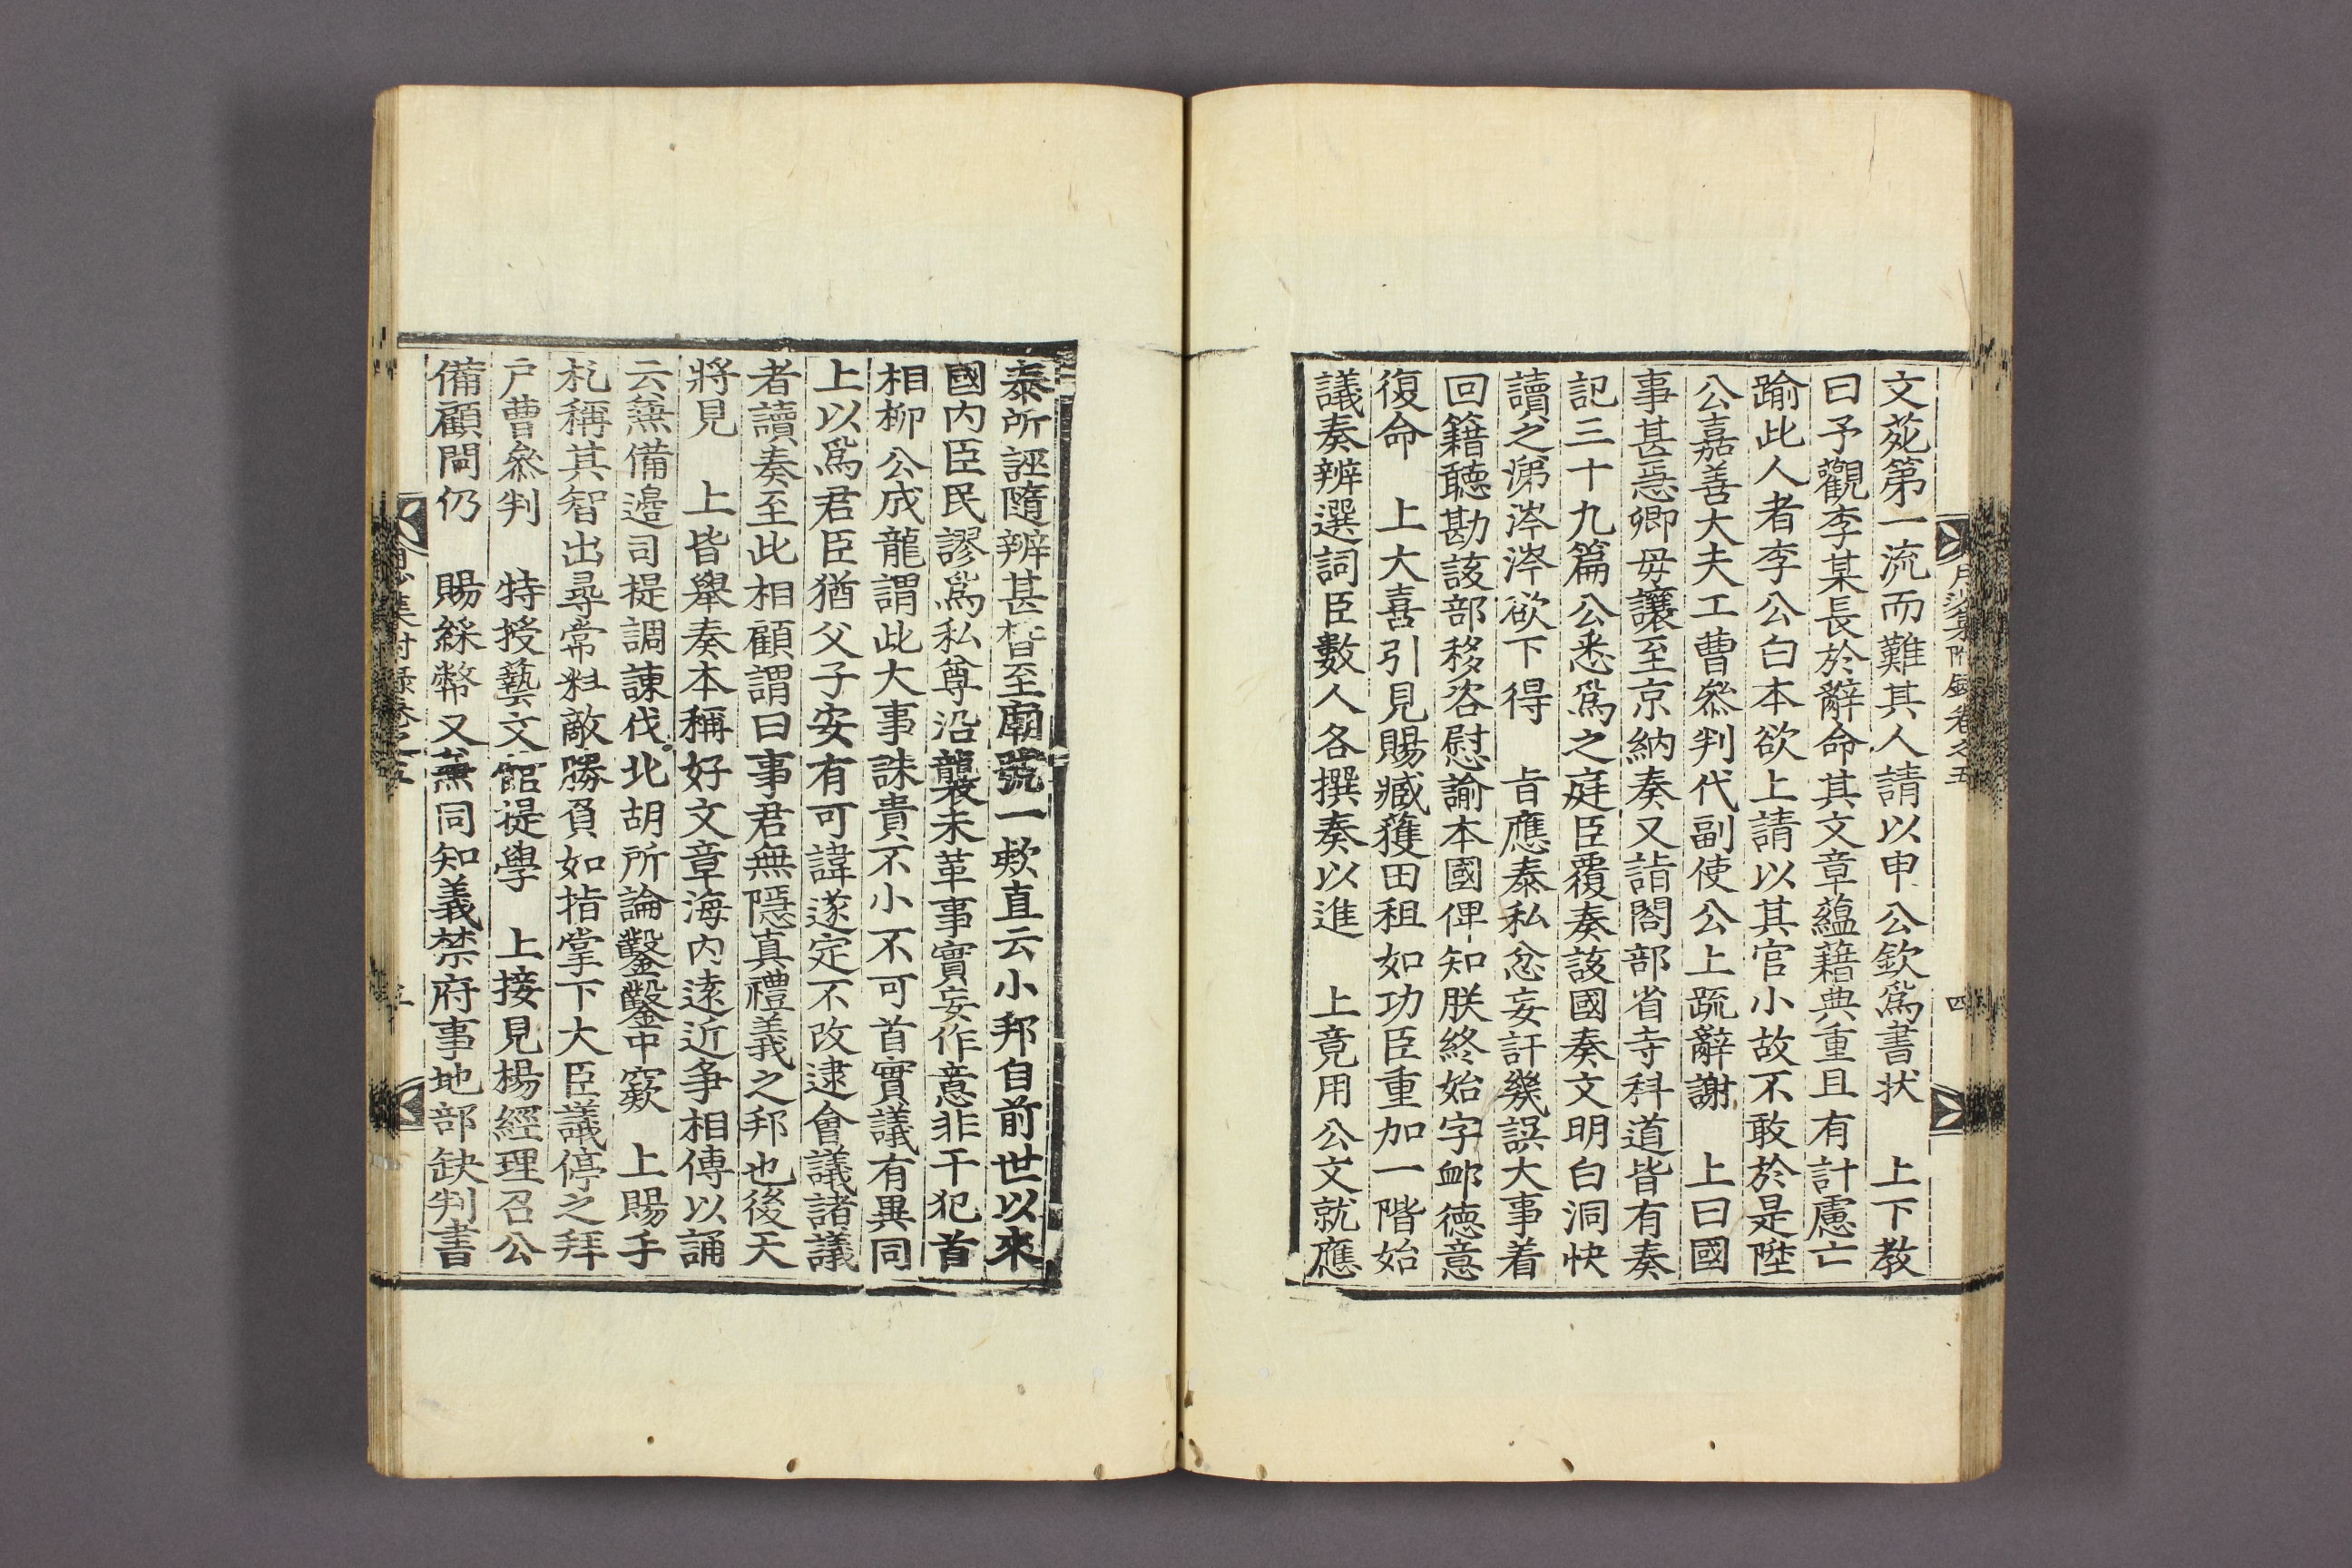 月沙集附錄卷之五
四
文苑第一流而難其人請以申公欽爲書状　上下教
曰予觀李某長於辭命其文章蘊藉典重且有計慮亡
踰此人者李公白本欲上請以其官小故不敢於是陞
公嘉善大夫工曹叅判代副使公上䟽辭謝　上曰國
事甚急卿毋讓至京納奏又詣閤部省寺科道皆有奏
記三十九篇公悉爲之庭臣覆奏該國奏文明白洞快
讀之涕涔涔欲下得　旨應泰私忿妄訐幾誤大事着
回籍聽勘該部移咨慰諭本國俾知朕終始字䘏德意
復命　上大喜引見賜臧獲田租如功臣重加一階始
議奏辨選詞臣數人各撰奏以進　上竟用公文就應
泰所誣隨辨甚皆至廟號一欵直云小邦自前世以來
國内臣民謬爲私尊沿襲未革事實妄作意非干犯首
相柳公成龍謂此大事誅責不小不可首實議有異同
上以爲君臣猶父子安有可諱遂定不改逮會議諸議
者讀奏至此相顧謂曰事君無隱真禮義之邦也後天
將見　上皆舉奏本稱好文章海内遠近爭相傳以誦
云無備邊司提調諫伐北胡所論鑿鑿中窾　上賜手
札稱其智出尋常料敵勝負如指掌下大臣議停之拜
戶曹叅判　特授藝文館提學　上接見楊經理召公
備顧問仍　賜綵幣又無同知義禁府事地部缺判書
月沙集附録卷之五
五